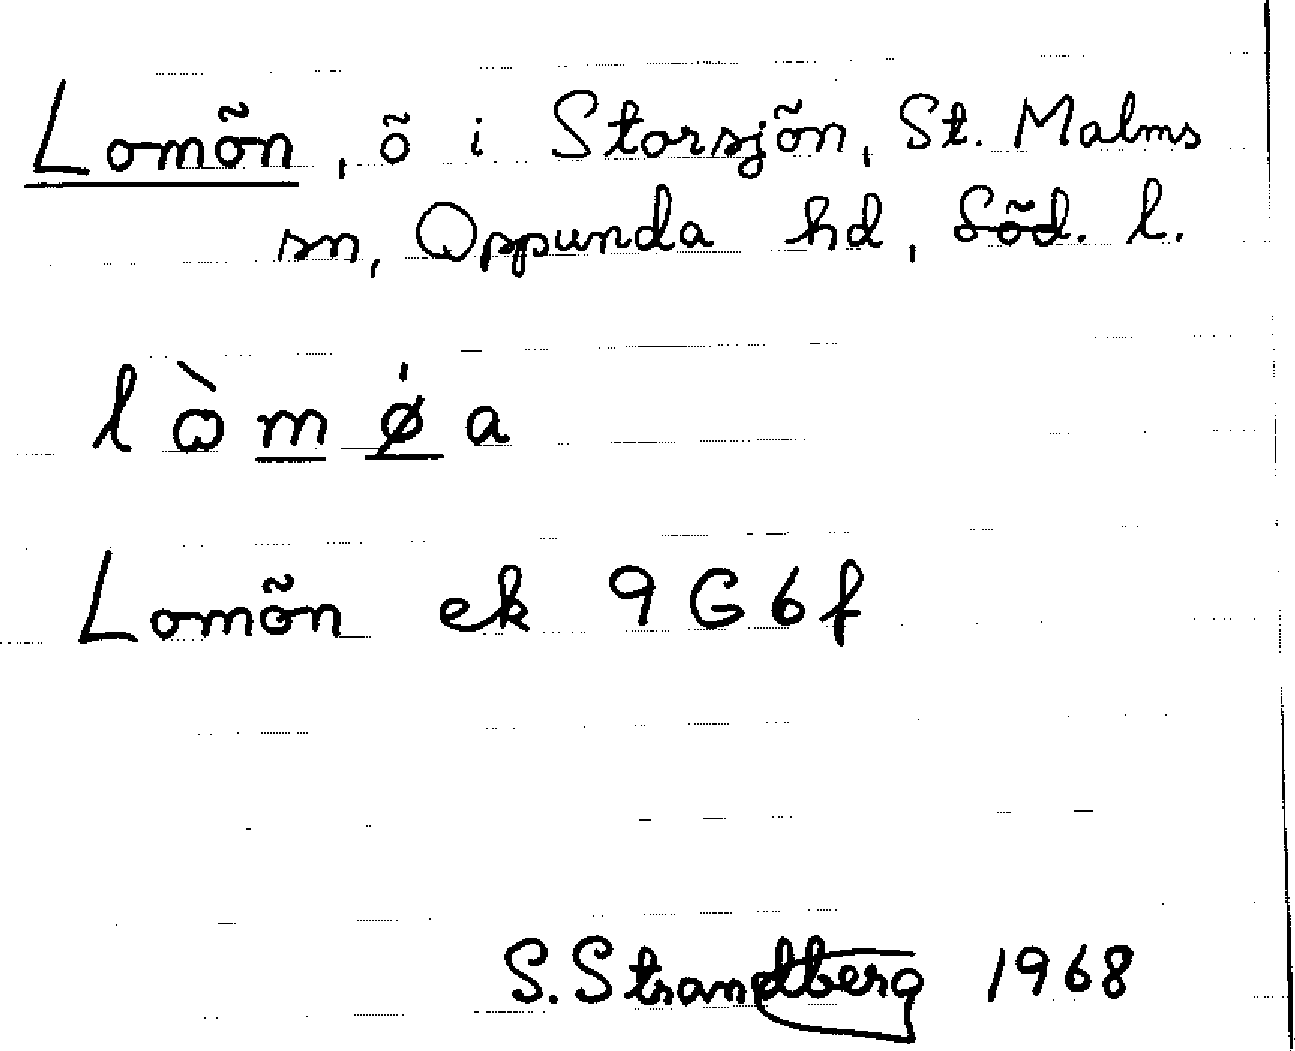 Lomön, ö i Storsjön, St. Malms
sn, Oppunda hd, Söd. l.
lòmǿa
Lomön ek 9G6f
S. Strandberg 1968